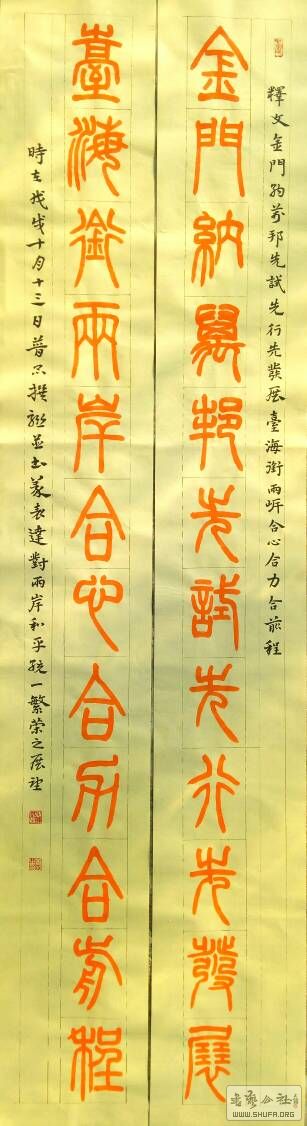 釋文金門納萬邦先試先行先發展臺海銜兩岸合心合力合前程
金門納萬邦先試先行先發展
臺海銜兩岸合心合力合前程
時在戊戌十月十三日普撰聯並書表達對兩岸和平統一繁荣之展望
书艺公社
WWW.SHUFA.ORG